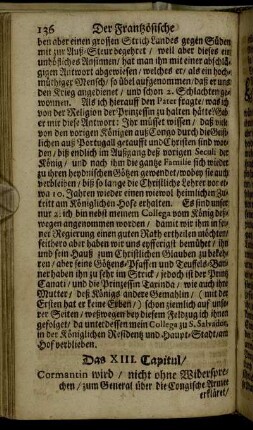 136 Der Frantzösische
ben aber einen großen Strich Landes gegen Süden
mit zur Auß-Steur begehrt / weil aber dieses ein
unhöfliches Ansinnen / hat man ihn mit einer abschlä-
gigen Antwort abgewiesen / welches er / als ein hoch-
müthiger Mensch / so übel aufgenommen / daß er uns
den Krieg angedienet / und schon 2. Schlachten ge-
wonnen. Als ich hierauff den Pater fragte / was ich
von der Religion der Prinzeßin zu halten hätte / gab
er mir diese Antwort: Ihr müsset wissen / daß viel
von den vorigen Königen auß Congo durch die Geist-
lichen auß Portugall getaufft und Christen sind wor-
den / biß endlich im Außgang deß vorigen Seculi der
König / und nach ihm die gantze Familie sich wieder
zu ihren heydnischen Götzen gewendet / wobey sie auch
verblieben / biß so lange die Christliche Lehrer vor et-
wa 10. Jahren wieder einen heimlichen Zu-
tritt am Königlichen Hofe erhalten. Es sind unser
nur 2. ich bin nebst meinem Collega vom König deß-
wegen angenommen worden / damit wir ihm in sei-
ner Regierung einen guten Rath ertheilen möchten /
seithero aber haben wir uns eyfferigst bemühet / ihn
und sein Hauß zum Christlichen Glauben zu bekeh-
ren / aber seine Götzen-Pfaffen und Teuffels-Ban-
ner haben ihn zu sehr im Strick / jedoch ist der Printz
Canati / und die Prinzeßin Tarinda / wie auch ihre
Mutter / deß Königs andere Gemahlin / (mit der
Ersten hat er keine Erben) schon ziemlich auf unse-
rer Seiten / weßwegen bey diesem Feldzug ich ihnen
gefolget / da unterdessen mein Collega zu S. Salvador,
in der Königlichen Residentz und Haupt-Stadt / am
Hof verblieben.
Das XIII. Capitul /
Cormantin wird / nicht ohne Widerspre-
chen / zum General über die Congische Armee
erkläret /